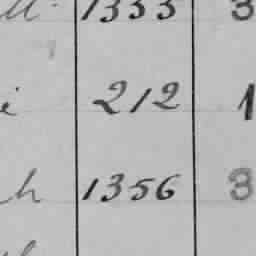 1333 3
i 212 1
h 1356 3